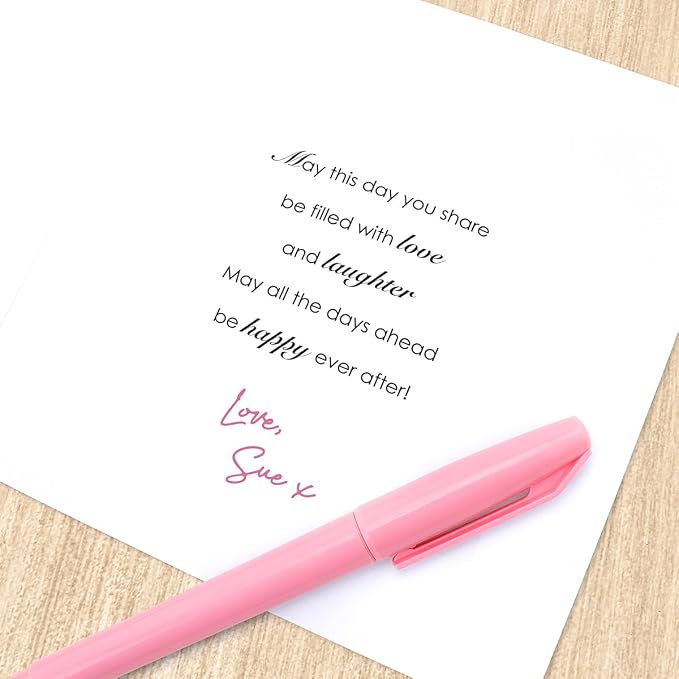 May this day you share
be filled with love
and laughter
May all the days ahead
be happy ever after!
Love,
Sue x